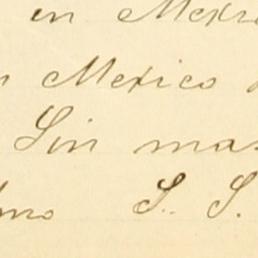 en Mexi
Mexico
Sin mas
S. S.